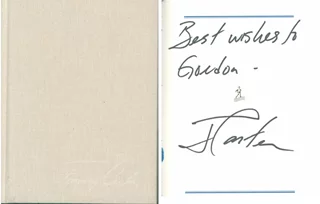 Best wishes to
Gordon -
J Carter